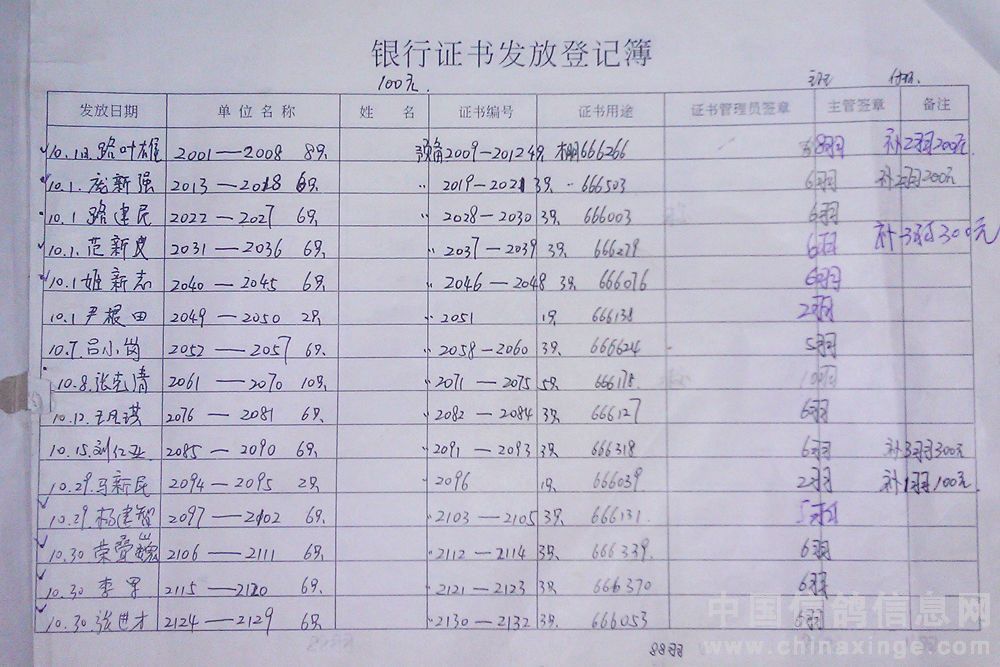 银行证书发放登记簿
100元.
发放日期 单位名称 姓 名 证书编号 证书用途 证书管理员签章 主管签章 备注
10.1日 路叶雄 2001—2008 8只 预备2009-2012 4只 棚666266 8羽 补2羽200元
10.1. 庞新强 2013—2018 6只 〃 2019-2021 3只 〃 666503 6羽 补2羽200元
10.1 路建民 2022—2027 6只 〃 2028-2030 3只 666003 6羽
10.1. 范新良 2031—2036 6只 〃 2037-2039 3只 666279 6羽 补3羽300元
10.1 姬新志 2040—2045 6只 〃 2046-2048 3只 666076 6羽
10.1 尹根田 2049—2050 2只 〃 2051 1只 666138 2羽
10.7. 吕小岗 2052—2057 6只 〃 2058-2060 3只 666624 5羽
10.8. 张克清 2061—2070 10只 〃 2071—2075 5只 666178 10羽
10.12. 王凤琪 2076—2081 6只 〃 2082—2084 3只 666127 6羽
10.15. 刘仁亚 2085—2090 6只 〃 2091—2093 3只 666318 6羽 补3羽300元
10.29. 马新民 2094—2095 2只 〃 2096 1只 666039 2羽 补1羽100元
10.29 杨建智 2097—2102 6只 〃 2103—2105 3只 666131 5羽
10.30 2106—2111 6只 〃 2112—2114 3只 666339 6羽
10.30 李军 2115—2120 6只 〃 2121—2123 3只 666370 6羽
10.30 张世才 2124—2129 6只 〃 2130—2132 3只 666053 6羽
88羽
中国信鸽信息网
www.chinaxinge.com